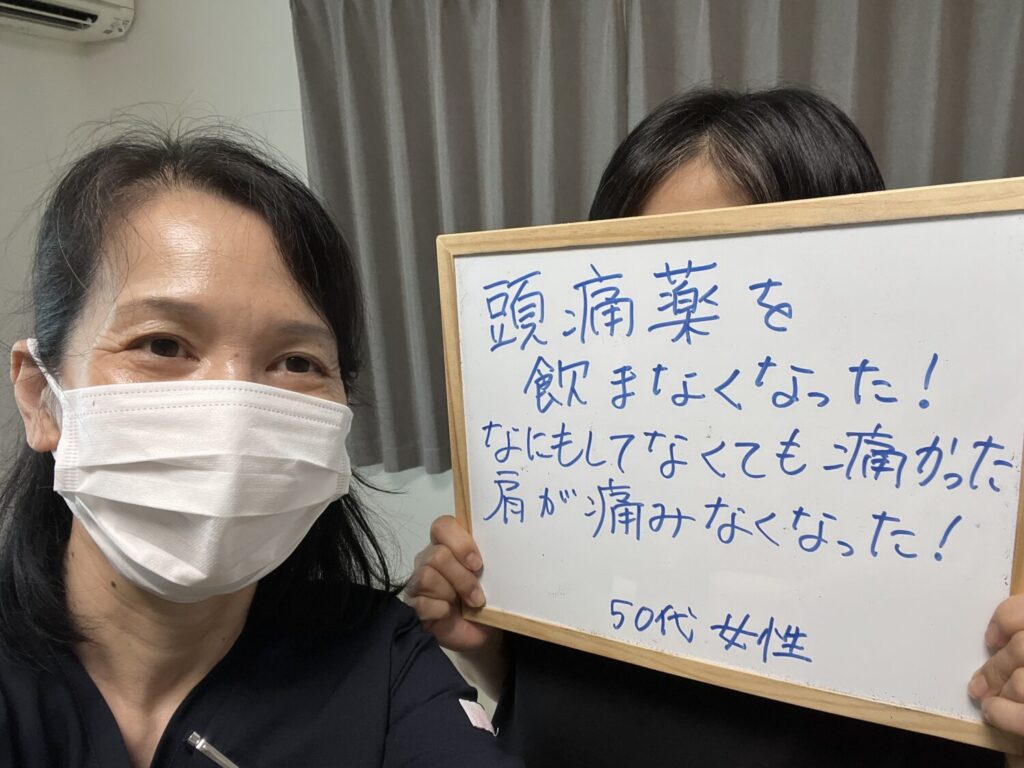 頭痛薬を
飲まなくなった！
なにもしてなくても痛かった
肩が痛みなくなった！
50代 女性